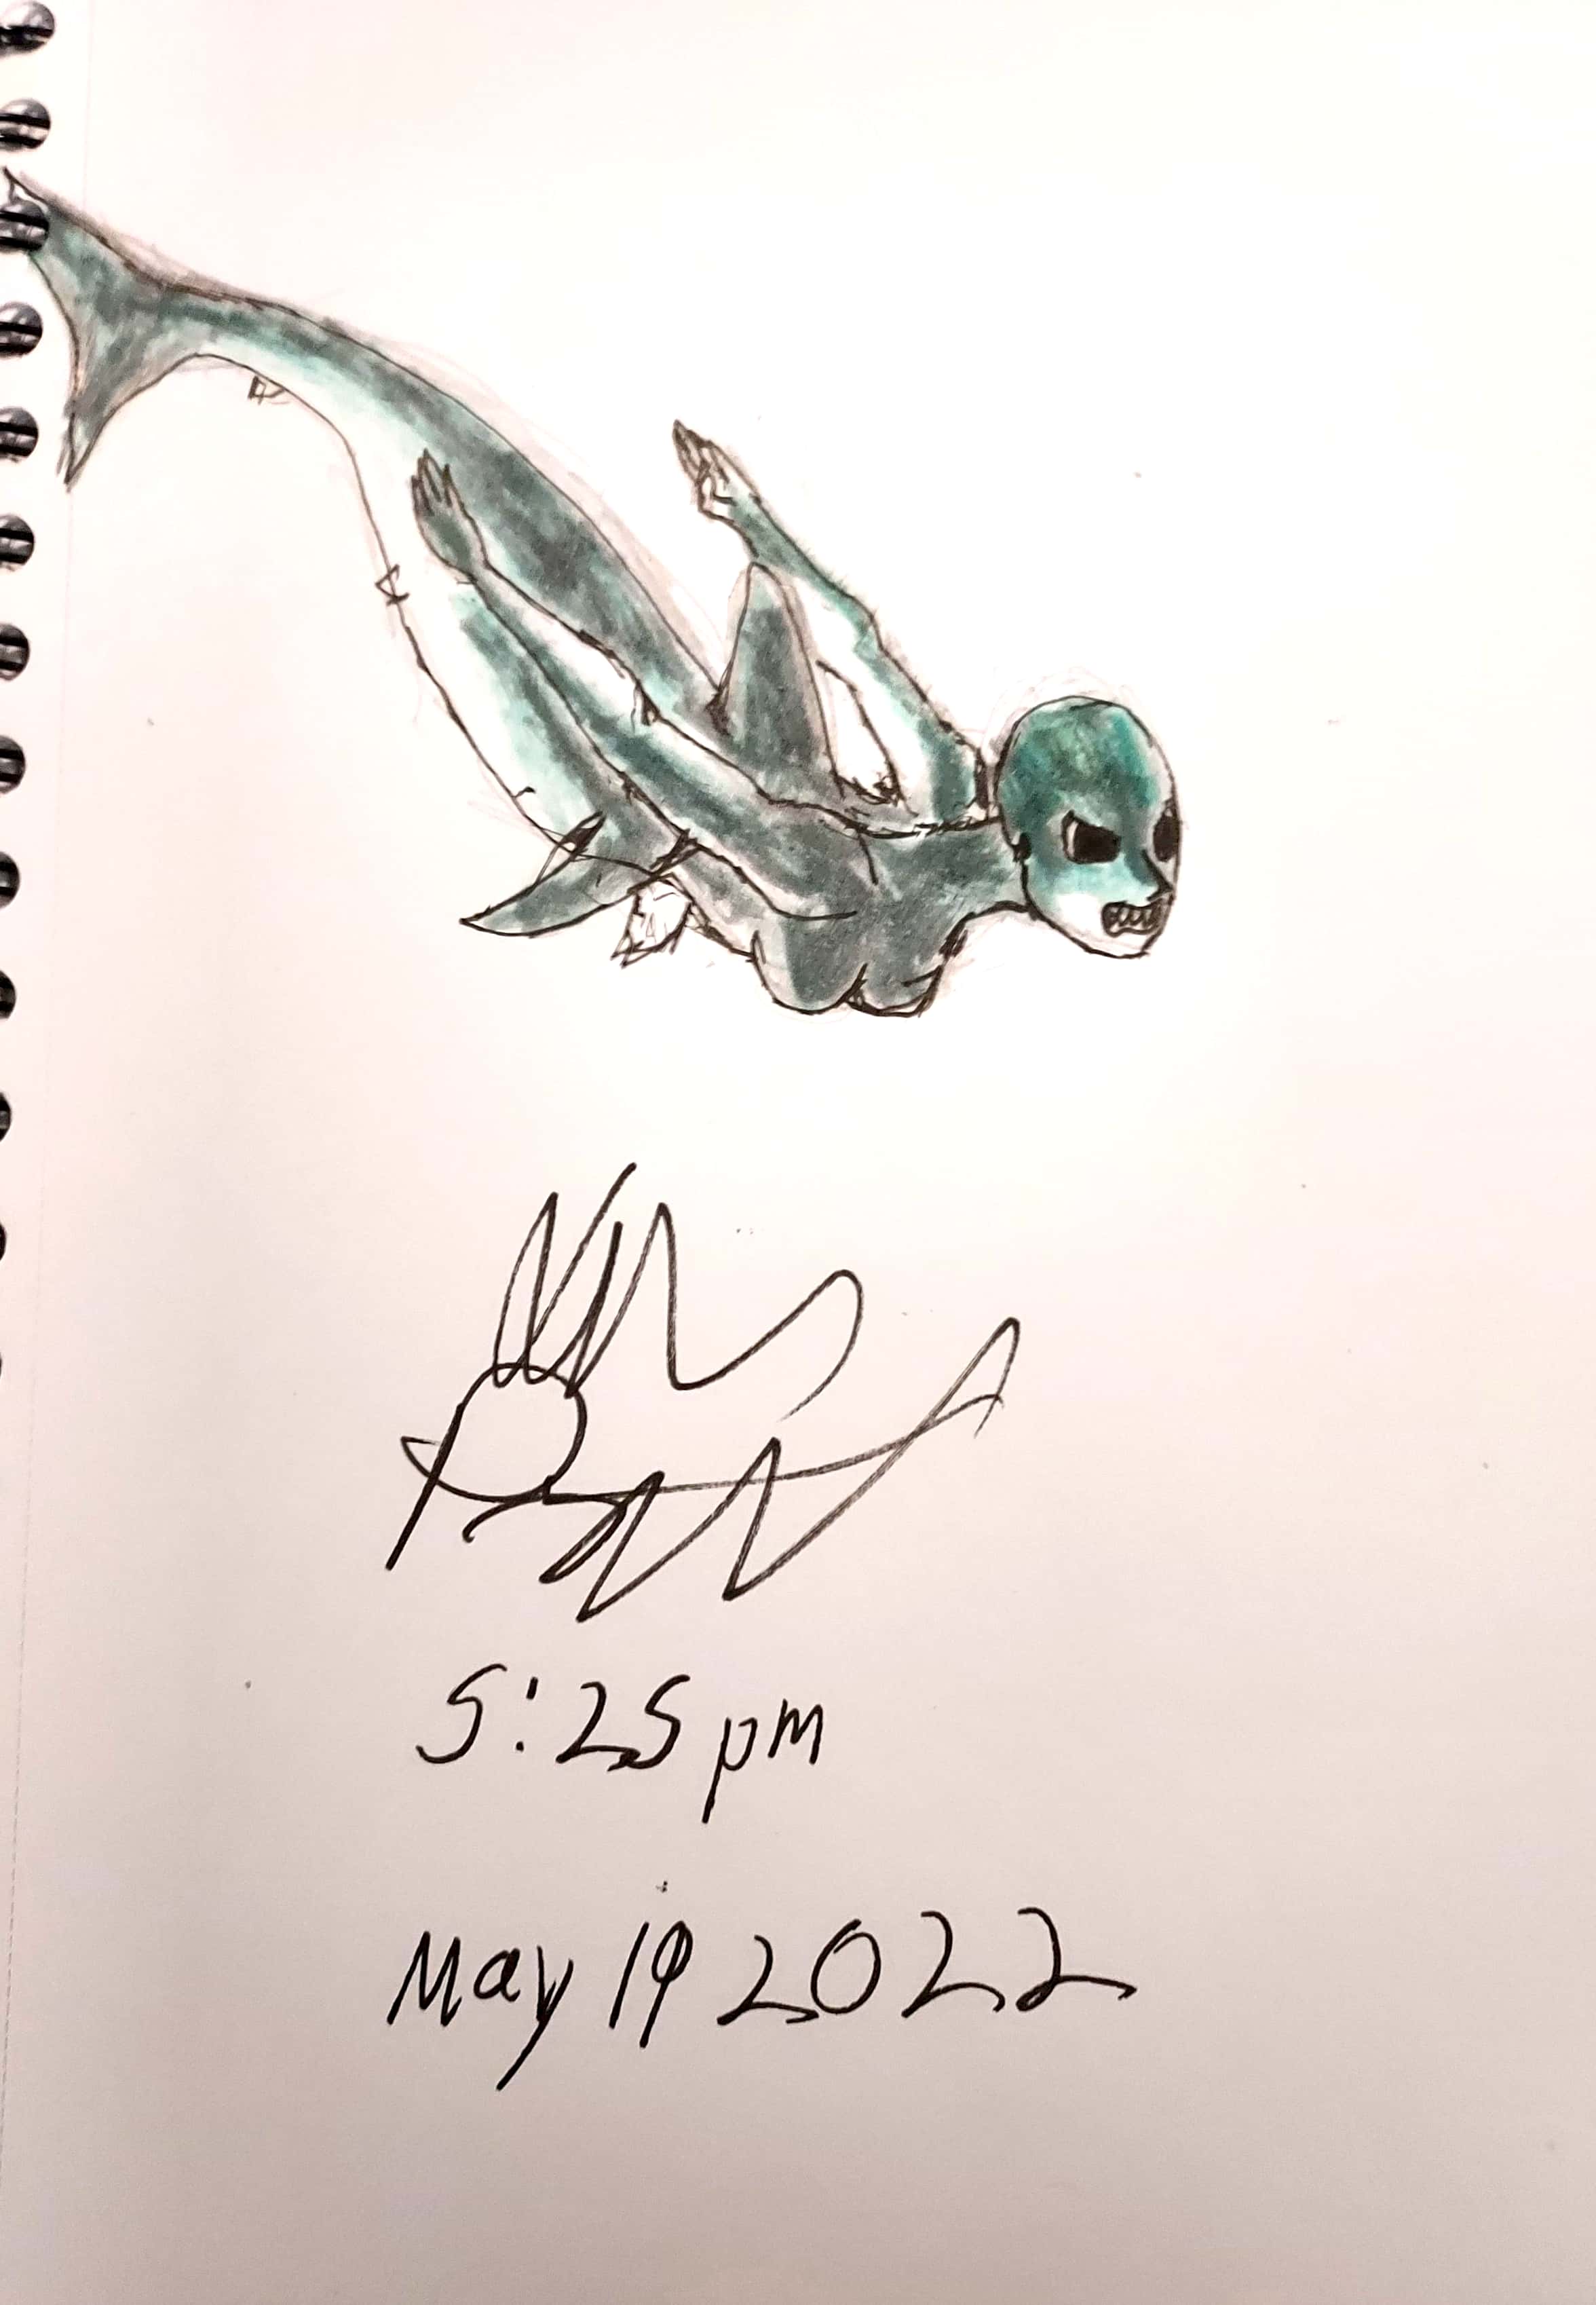 5:25 pm
May 19 2022